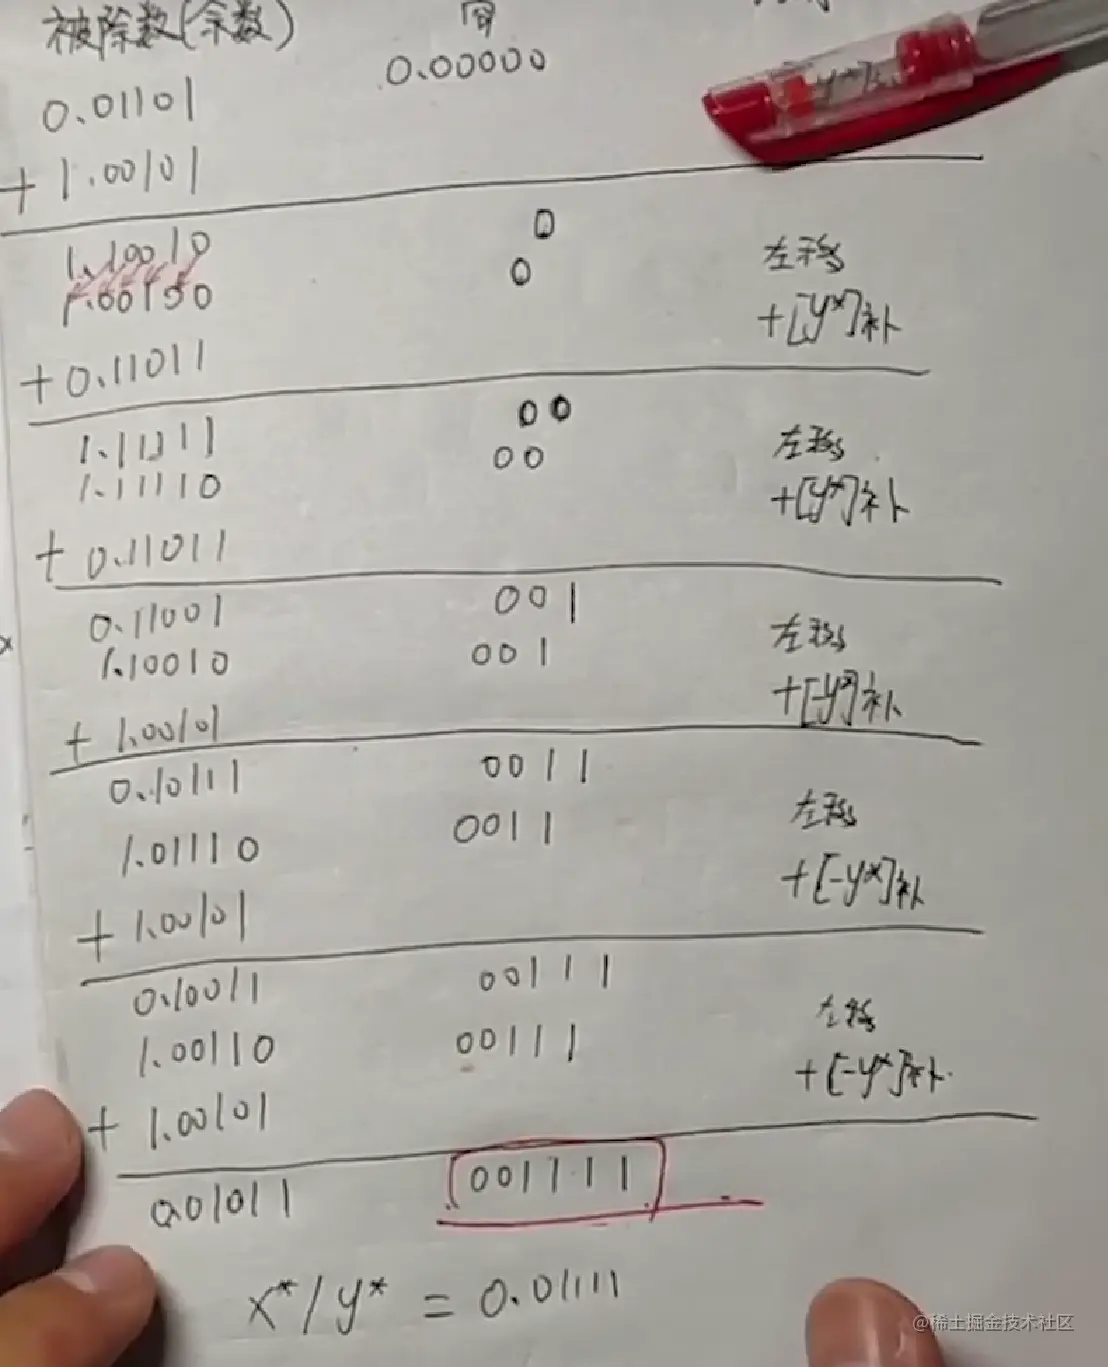 被除数(余数) 商
0.01101 0.00000
+ 1.00101
1.10010 0 左移
1.00100 0 +[y*]补
+ 0.11011
1.11111 00 左移
1.11110 00 +[y*]补
+ 0.11011
0.11001 001 左移
1.10010 001 +[-y*]补
+ 1.00101
0.10111 0011 左移
1.01110 0011 +[-y*]补
+ 1.00101
0.10011 00111 左移
1.00110 00111 +[-y*]补
+ 1.00101
0.01011 001111
x*/y* = 0.01111
@稀土掘金技术社区